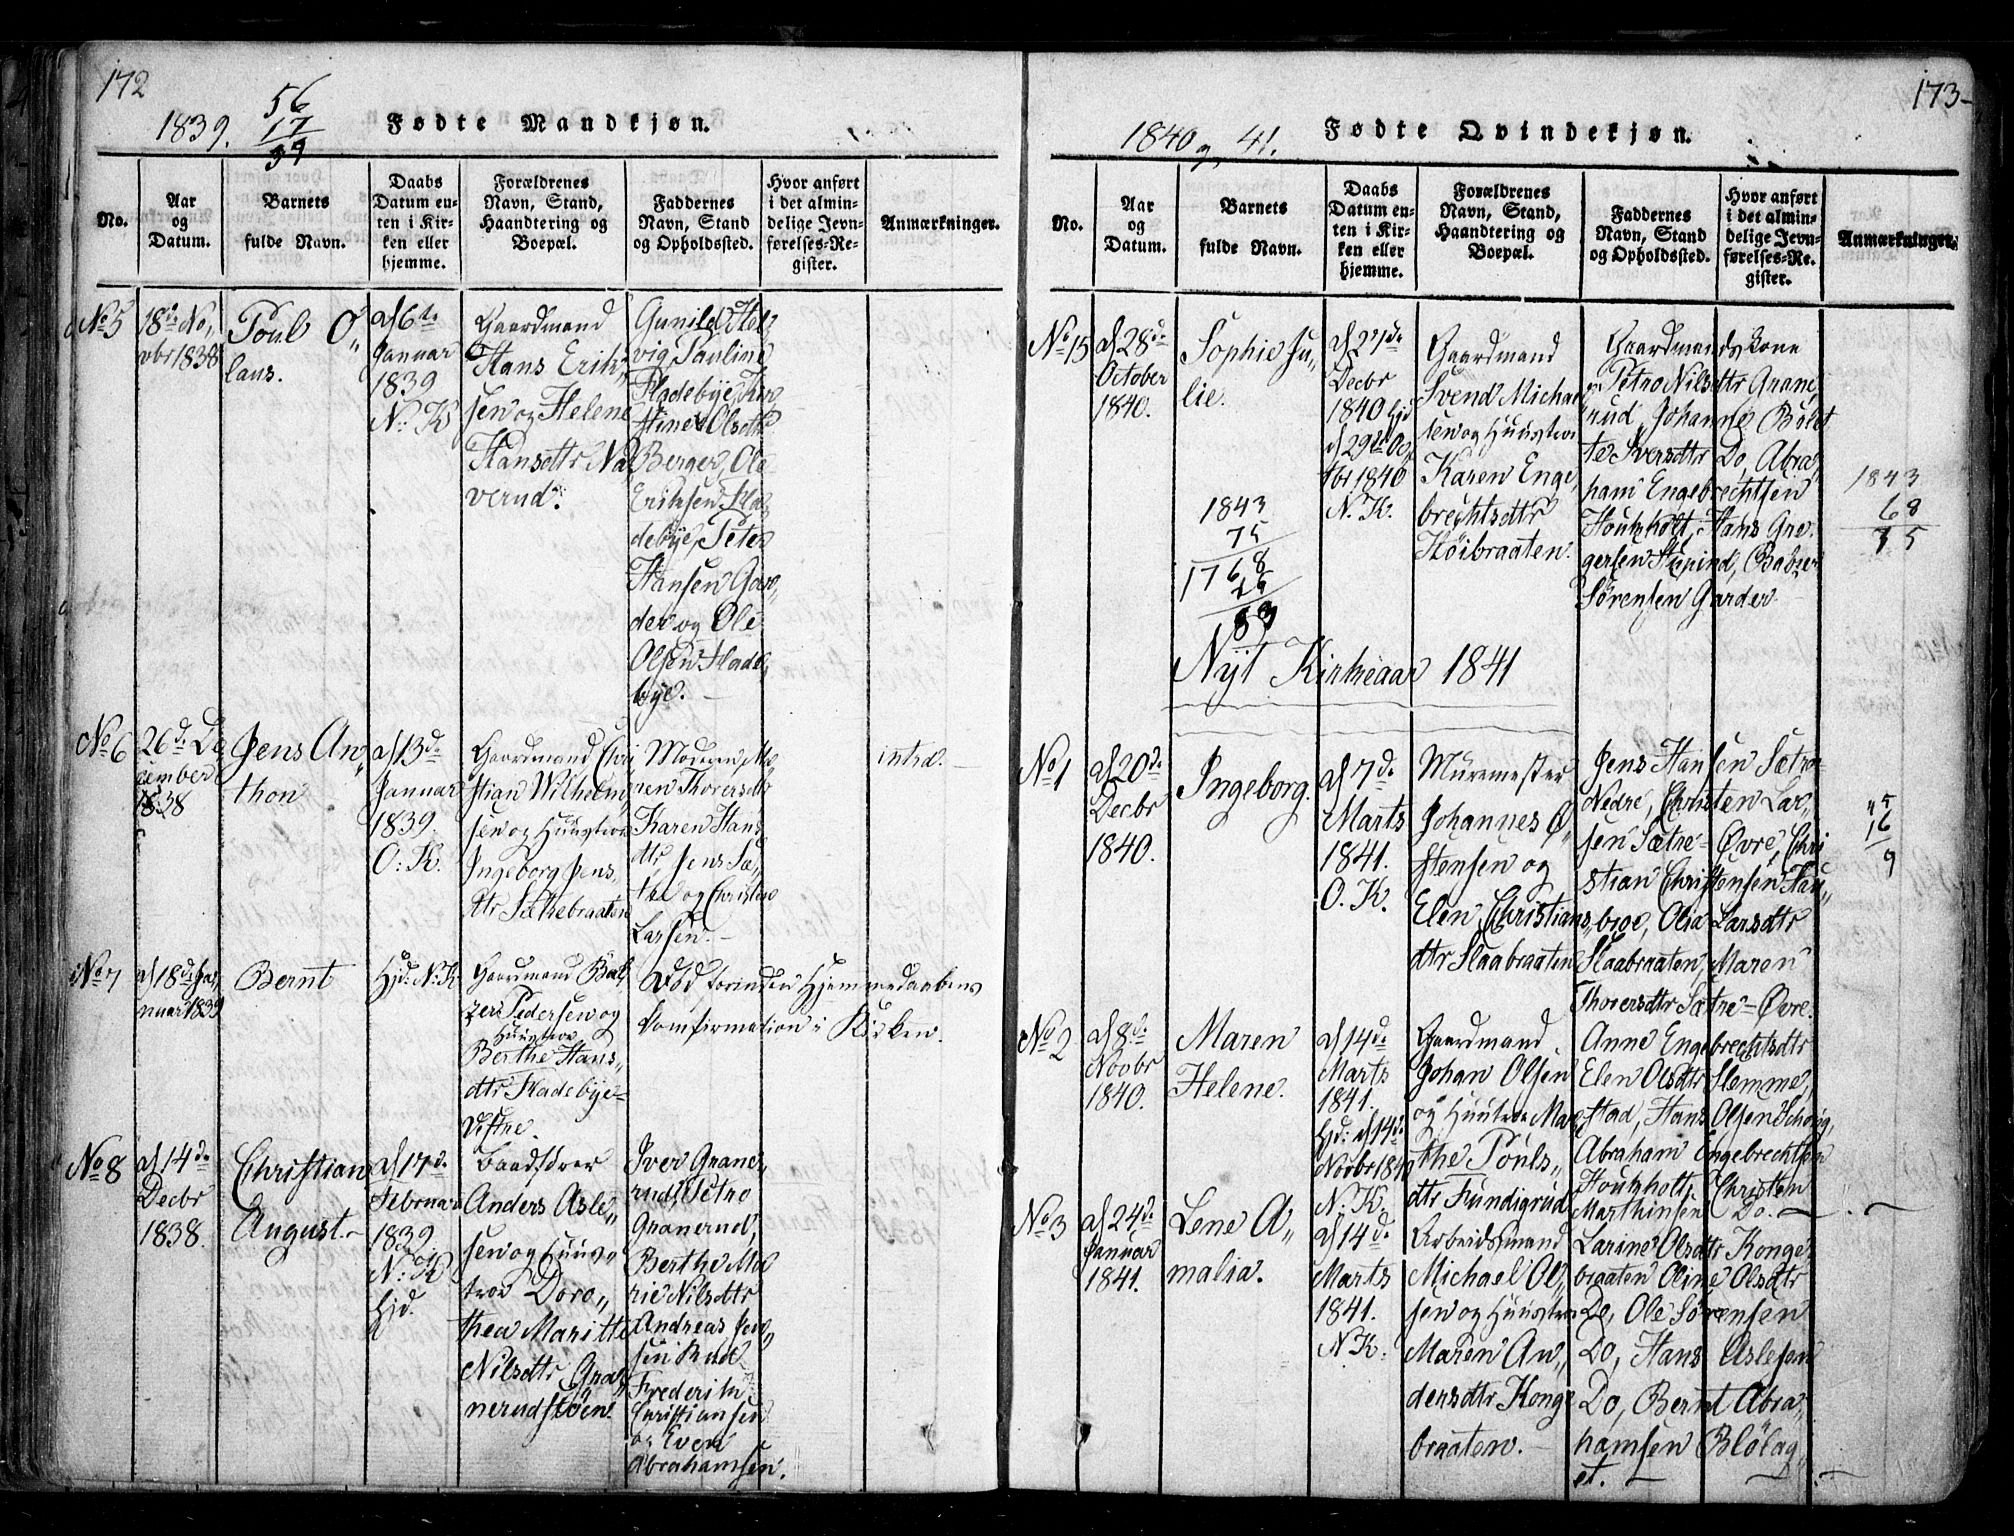 172
1839.
56
17
39
Fødte Mandkjøn.
No.
Aar
og
Datum.
Barnets
fulde Navn.
Daabs
Datum en-
ten i Kir-
ken eller
hjemme.
Forældrenes
Navn, Stand,
Haandtering og
Boepæl.
Faddernes
Navn, Stand
og Opholdssted.
Hvor anført
i det almin-
delige Jevn-
førelses-Re-
gister.
Anmærkninger.
No 5
18de No,
vbr 1838
Poul O,,
laus.
d 6te
Januar
1839
N: K
Gaardmand
Hans Erik,
sen og Helene
Hansdtr Na,
verud.
Gunild Hel,
vig Pauline
Fladebye, Kir,
stine Olsdtr
Berger, Ole
Eriksen Fla,
debye, Peter
Hansen Gar,,
der og Ole
Olsen Flade,
bye. –
No 6
26de De,
cember
1838
Jens An,,
thon
d 13de
Januar
1839.
O: K.
Gaardmand Chri
stian Wilhelm,
sen og Huustroe
Ingeborg Jens,
dtr Sætrebraaten
Moderen, Ma,
ren Thorersdtr
Karen Hans
dtr Jens Sæ,,
tre og Christen
Larsen. –
introd. –
No 7
d 18de Ja,
nuar 1839
Bernt
Hjd: N: K
Gaardmand Bal,
zer Pedersen og
Huustroe
Berthe Hans,,
dtr Fladebye=
Vestre.
Død forinden Hjemmedaabens
Confirmation i Kirken.
No 8
d 14de
Decbr
1838.
Christian
August. –
d 17de
Februar
1839.
N: K
Hjd.
Baadsdrer
Anders Asle,,
sen og Huus,
troe Doro,,
thea Maritte
Nilsdtr Gra,,
nerudstøen.
Iver Grane,,
rud, Petro
Granerud,
Berthe Ma
rie Nilsdtr
Andreas Jen,,
sen Rud
Frederik
Christiansen
og Even
Abrahamsen.
173–
1840 og 41.
Fødte Qvindekjøn.
No.
Aar
og
Datum.
Barnets
fulde Navn.
Daabs
Datum en-
ten i Kir-
ken eller
hjemme.
Forældrenes
Navn, Stand,
Haandtering og
Boepæl.
Faddernes
Navn, Stand
og Opholdssted.
Hvor anført
i det almin-
delige Jevn-
førelses-Re-
gister.
Anmærkninger.
No 15
d 28de
October
1840.
Sophie Ju,,
lie.
d 27de
Decbr
1840 Hjd
d 29de Oc,
tbr 1840
N. K.
Gaardmand
Svend Michel
sen og Huustroe
Karen Enge,
brechtsdtr
Høibraaten.
Gaardmands Kone
Petro Nilsdtr Grane,
rud, Johanne Bolet
te Iversdtr Do, Abra,
ham Engebrechtsen
Houkholt, Hans Gre,
gersen Stupind, Balzer
Sørensen Garder
1843
75
1768
83
1843
68
75
Nyt Kirkeaar 1841
No 1
d 20de
Decbr
1840.
Ingeborg.
d 7de
Marts
1841.
O. K.
Muremester
Johannes Ø,,
stensen og
Elen Christians,,
dtr Slaabraaten
Jens Hansen Sætre
Nedre, Christen Lar,,
sen Sætre= Øvre, Chri
stian Christensen Hau,,
broe, Olia Larsdtr
Slaabraaten, Maren
Thorersdtr Sætre= Øvre.
16
9
No 2
d 8de
Novbr
1840.
Maren
Helene.
d 14de
Marts
1841.
Hjd: d 14de
Novbr 1840
N. K.
Gaardmand
Johan Olsen
og Huustroe Mar
the Pouls,,
dtr Fundigrud
Anne Engebrechtsdtr
Elen Olsdtr Slemme,
stad, Hans Olsen Schøyg,
Abraham Engebrechtsen
Houkholt, Christen
Marthinsen Do. –
No 3
d 24de
Januar
1841.
Lene A,,
malia.
d 14de
Marts
1841.
N K.
Arbeidsmand
Michael Ol,,
sen og Huustroe
Maren An,,
dersdtr Konge
braaten. –
Larine Olsdtr Konge
braaten Oline Olsdtr
Do, Ole Sørensen
Do, Hans Aslesen
Do, Bernt Abra,,
hamsen Blølag,,
et. –